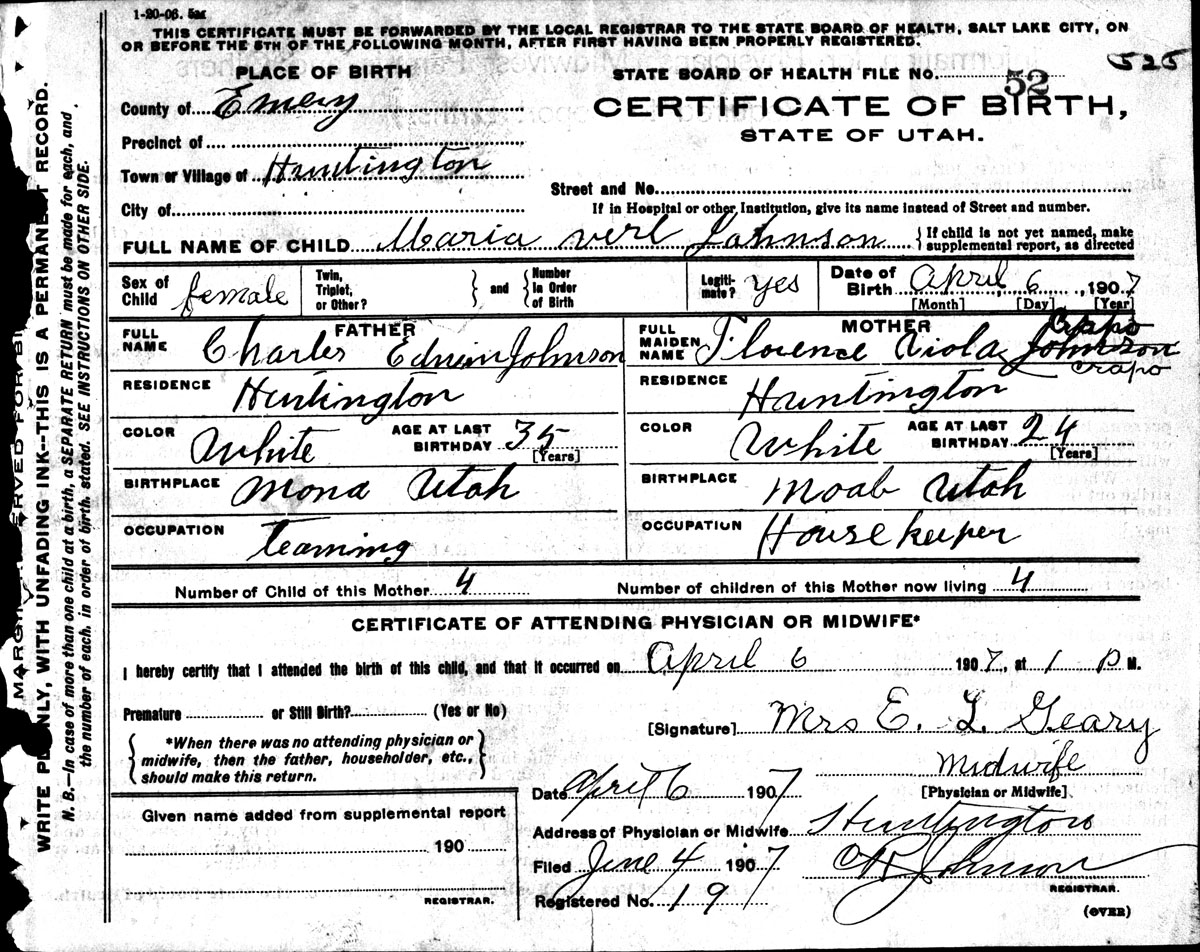 1-20-06. 5M
THIS CERTIFICATE MUST BE FORWARDED BY THE LOCAL REGISTRAR TO THE STATE BOARD OF HEALTH, SALT LAKE CITY, ON
OR BEFORE THE 5TH OF THE FOLLOWING MONTH, AFTER FIRST HAVING BEEN PROPERLY REGISTERED.
525
PLACE OF BIRTH
County of Emery
Precinct of
Town or Village of Huntington
City of
STATE BOARD OF HEALTH FILE NO. 52
CERTIFICATE OF BIRTH,
STATE OF UTAH.
Street and No.
If in Hospital or other Institution, give its name instead of Street and number.
FULL NAME OF CHILD Maria verl Johnson { If child is not yet named, make supplemental report, as directed
Sex of Child female
Twin, Triplet, or Other? } and { Number In Order of Birth
Legiti-mate? yes
Date of Birth April 6, 1907
[Month] [Day] [Year]
FATHER
FULL NAME Charles Edwin Johnson
RESIDENCE Huntington
COLOR White AGE AT LAST BIRTHDAY 35
[Years]
BIRTHPLACE Mona Utah
OCCUPATION teaming
MOTHER
Crapo
FULL MAIDEN NAME Florence Viola Johnson
crapo
RESIDENCE Huntington
COLOR White AGE AT LAST BIRTHDAY 24
[Years]
BIRTHPLACE Moab Utah
OCCUPATION House keeper
Number of Child of this Mother 4 Number of children of this Mother now living 4
CERTIFICATE OF ATTENDING PHYSICIAN OR MIDWIFE*
I hereby certify that I attended the birth of this child, and that it occurred on April 6 1907, at 1 P M.
Premature or Still Birth? (Yes or No)
{ *When there was no attending physician or
midwife, then the father, householder, etc.,
should make this return. }
[Signature] Mrs E. L. Geary
Midwife
[Physician or Midwife]
Date April 6 1907
Address of Physician or Midwife Huntington
Filed June 4 1907
Registered No. 19
Johnson
REGISTRAR.
(OVER)
Given name added from supplemental report
190
REGISTRAR.
WRITE PLAINLY, WITH UNFADING INK--THIS IS A PERMANENT RECORD.
N. B.--In case of more than one child at a birth, a SEPARATE RETURN must be made for each, and
the number of each, in order of birth, stated. SEE INSTRUCTIONS ON OTHER SIDE.